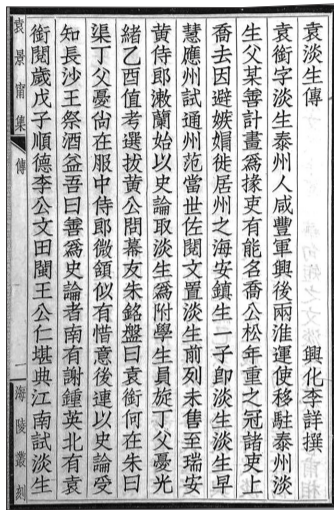 袁淡生傳
興化李詳撰
袁銜字淡生泰州人咸豐軍興後兩淮運使移駐泰州淡
生父某善計畫爲掾吏有能名喬公松年重之冠諸吏上
喬去因避嫉媢徙居州之海安鎮生一子卽淡生淡生早
慧應州試通州范當世佐閱文置淡生前列未售至瑞安
黃侍郎漱蘭始以史論取淡生爲附學生員旋丁父憂光
緒乙酉值考選拔黃公問幕友朱銘盤曰袁銜何在朱曰
渠丁父憂尙在服中侍郎微頷似有惜意後連以史論受
知長沙王祭酒益吾曰善爲史論者南有謝鍾英北有袁
銜閱歲戊子順德李公文田閩王公仁堪典江南試淡生
袁景甯集
傳
一
海陵叢刻